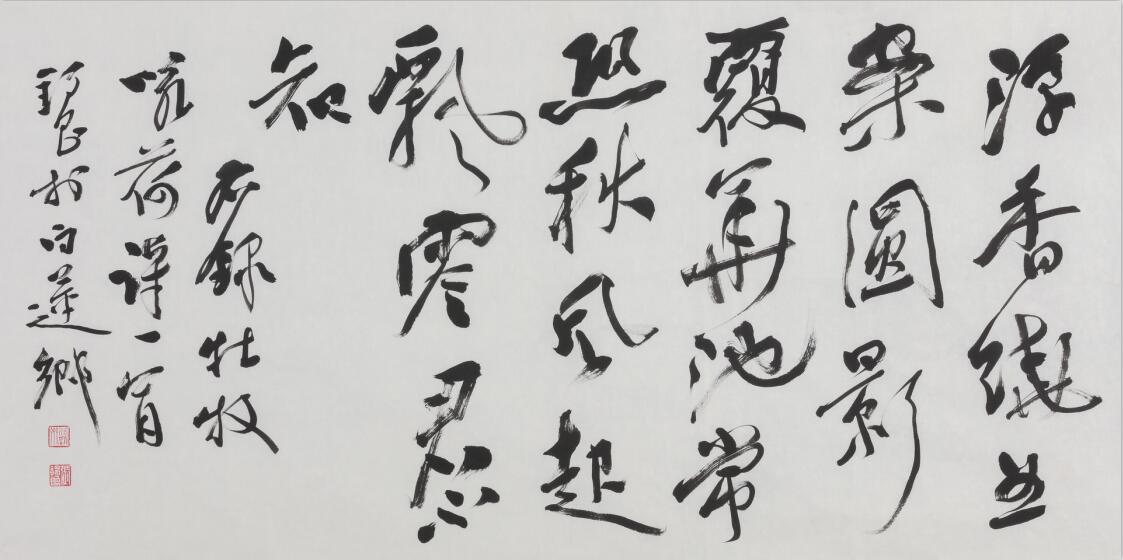 浮香繞曲
岸圓影
覆華池常
恐秋風起
飄零君不
知
右錄杜牧
咏荷詩一首
於白蓮鄉